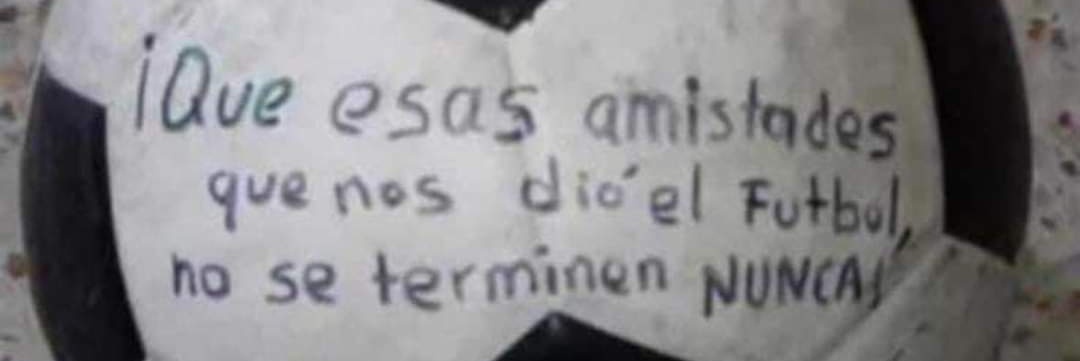 ¡Que esas amistades
que nos dió el Futbol,
no se terminen NUNCA!